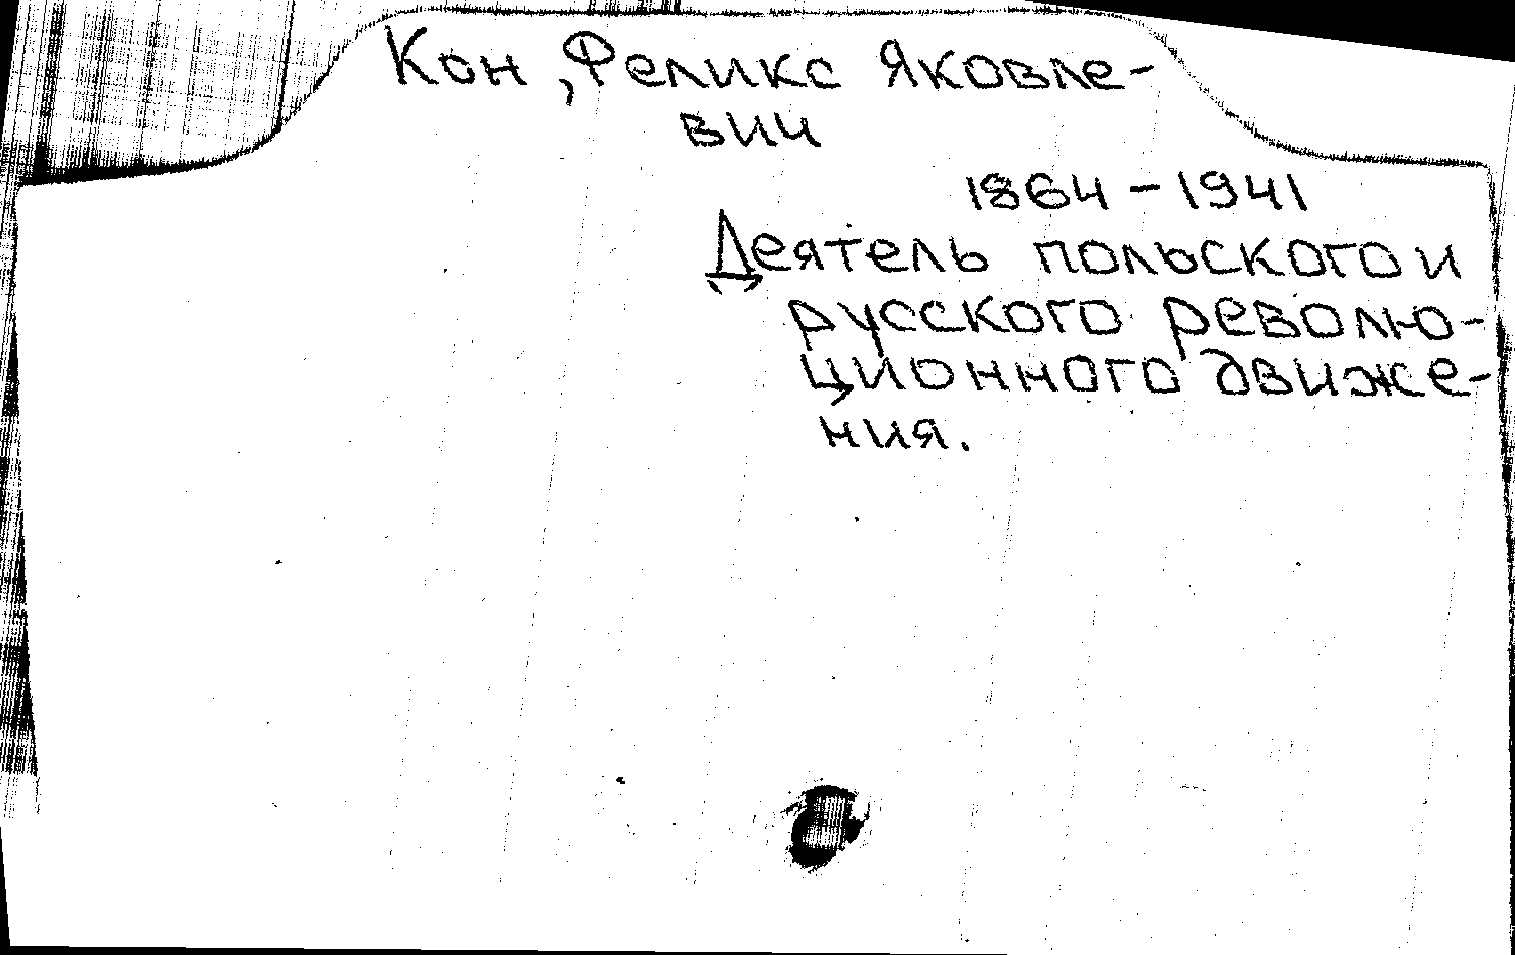 Кон, Феликс Яковле-
вич
1864 - 1941
Деятель польского и
русского револю-
ционного движе-
ния.